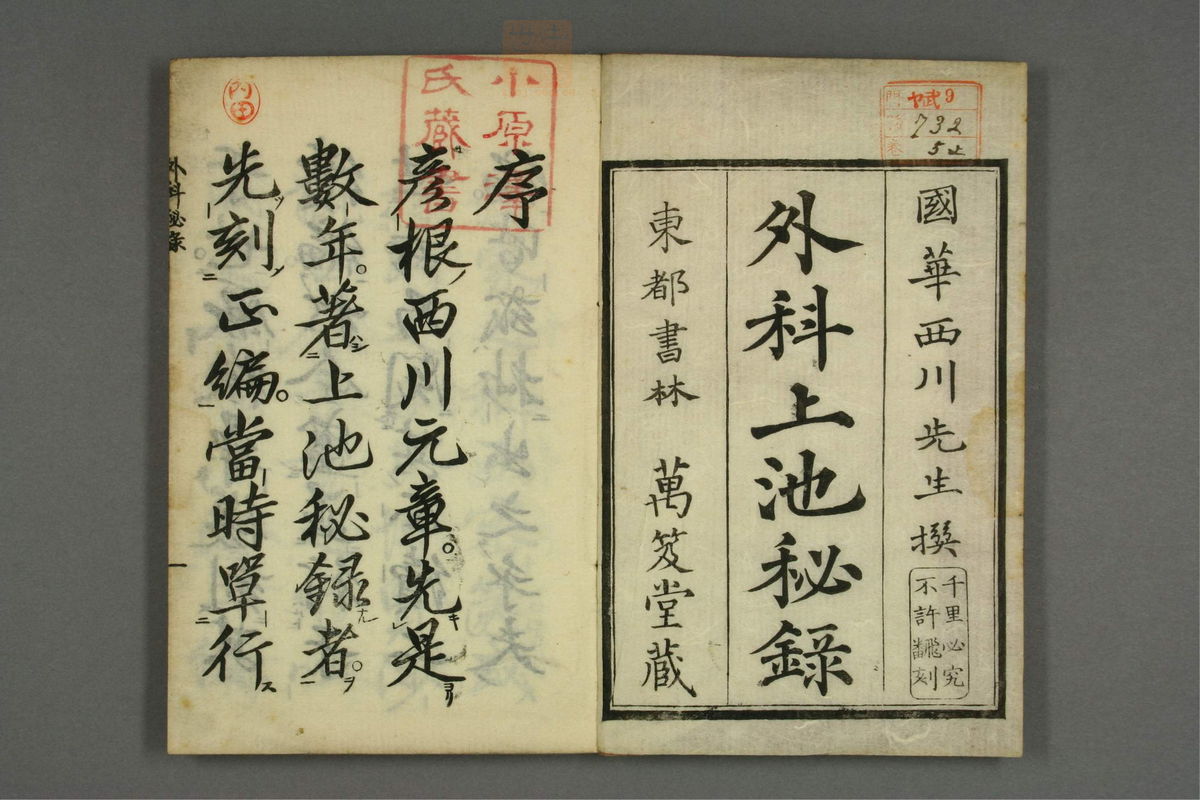 國華西川先生撰
千里必究
不許飜刻
外科上池秘錄
東都書林 萬笈堂藏
9
732
5止
小原
氏藏書
内田
序
彦根西川元章。先是
數年。著上池秘録者。
先刻正編。當時單行
外科秘录
一